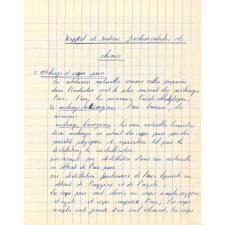 Rappel de notions fondamentales de
chimie
1. Mélanges et corps purs
Les substances naturelles comme celles préparées
dans l'industrie sont le plus souvent des mélanges
l'air, l'eau, les minéraux, l'acide
les mélanges hétérogènes : l'eau
mélanges homogènes : les eaux naturelles
d'un mélange on extrait des corps purs par des
procédés physiques de séparation tel que la
distillation, la cristallisation
par exemple par distillation d'une eau naturelle
on obtient de l'eau pure
par distillation fractionnée de l'air liquide on
obtient de l'oxygène et de l'azote.
les corps purs sont divisés en corps simples oxygène,
et azote et corps composés l'eau, les corps
simples sont formés d'un seul élément, les corps